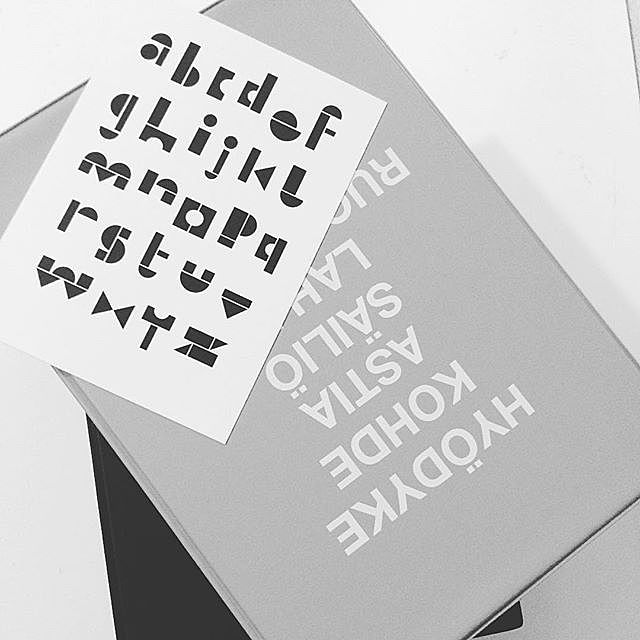 abcdef
ghijkl
mnopq
rstuv
wxyz
HYÖDYKE
KOHDE
ASTIA
SÄILIÖ
LAH